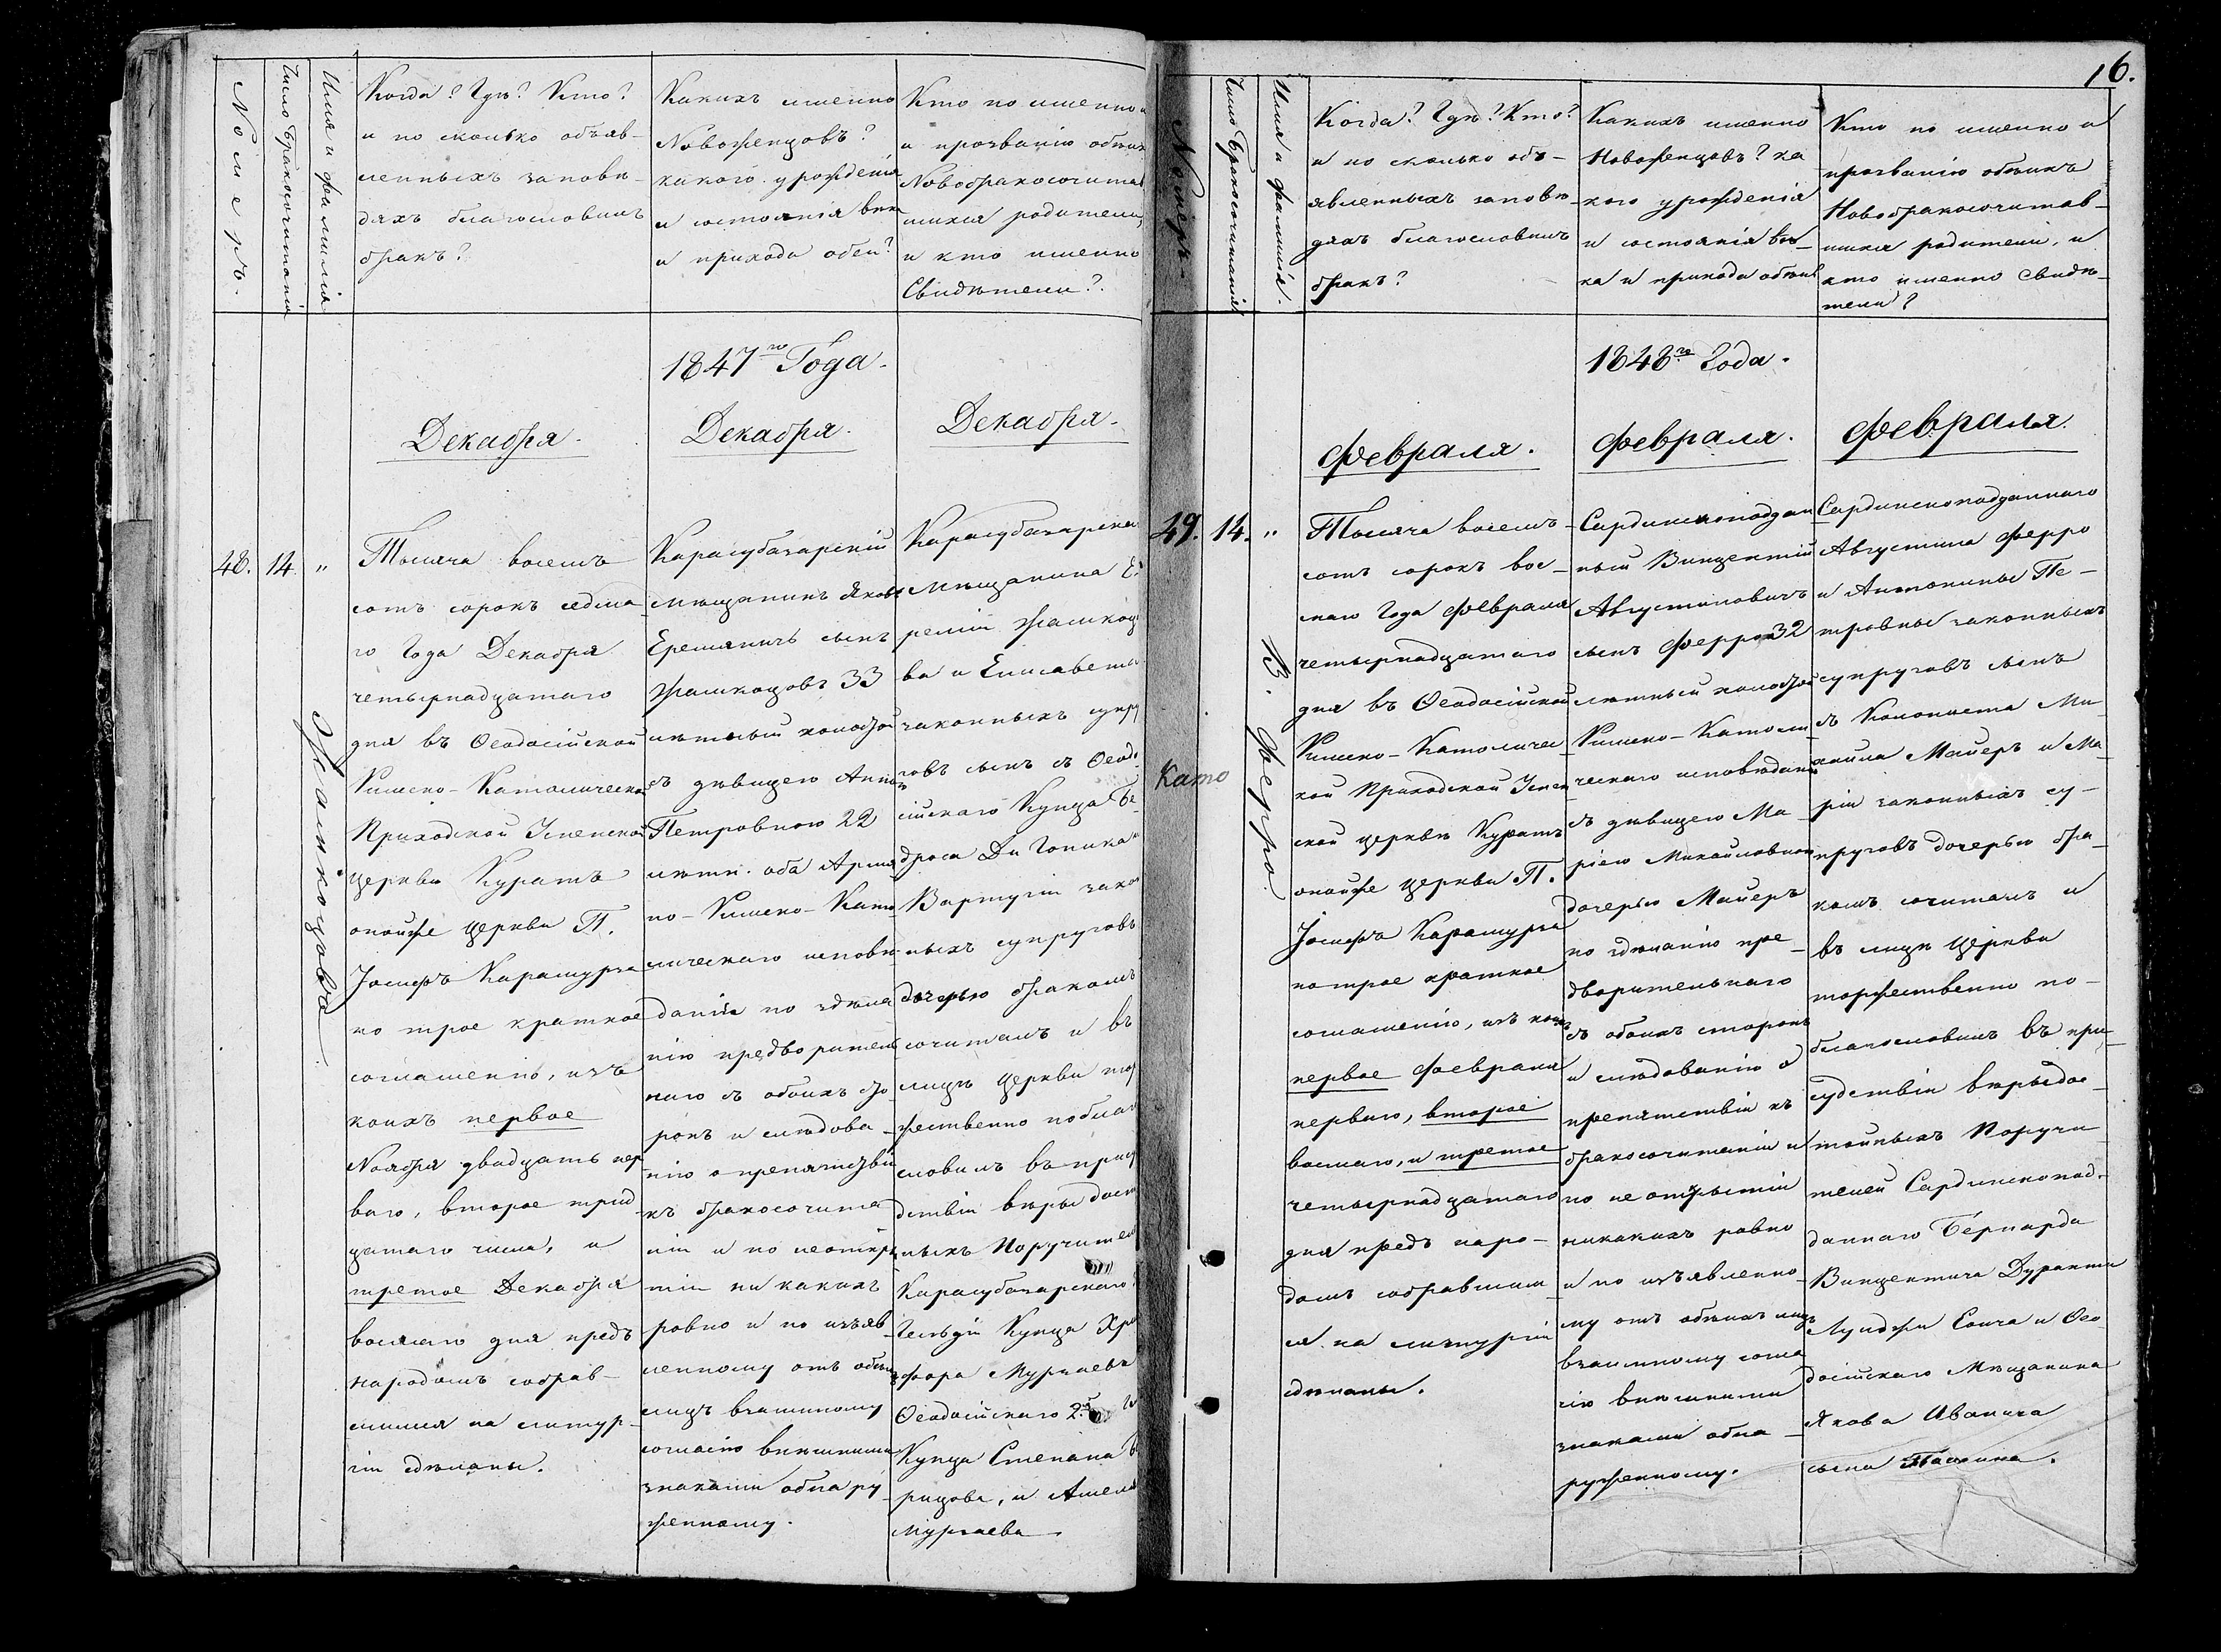 Номеръ.
Число Бракосочитанія
Имя и фамилія
Когда? Гдѣ? Кто?
и по сколько объяв-
ленныхъ заповѣ-
дяхъ благословилъ
бракъ?
Какихъ именно
Новоженцовъ?
какого урожденія
и состоянія вѣка
и прихода обѣи?
Кто по именно и
и прозванію обѣихъ
Новобракосочитав
шихся родители,
и кто именно
Свидѣтели?
1847го Года.
Декабря.
Декабря.
Декабря.
48. 14 "
Жамкоцовъ.
Тысяча восемъ
сотъ сорокъ седма
го Года Декабря
четырнадцатаго
дня въ Ѳеодосійской
Римско-Католической
Приходской Успенской
церкви Куратъ
онойже церкви П.
Іосифъ Карамурза
по трое кратное
соглашенію, изъ
коихъ первое
Ноября двадцать пер
ваго, второе трид
цатаго числа, и
третое Декабря
восмаго дня предъ
народомъ собрав-
шимся на литур-
гіи сдѣланы.
Карасубазарскій
мѣщанинъ Яковъ
Еремянинъ сынъ
Жамкоцовъ 33
лѣтный холостой
съ дѣвицею Анною
Петровною 22
лѣтн. оба Армя
но-Римско-Като
лическаго исповѣ
данія по здѣла
нію предворитель
наго съ обоихъ сто
ронъ и слѣдова-
нію о препятствіи
къ бракосочита
ніи и по неоткры
тіи никакихъ
ровно и по изъяв-
ленному отъ обѣихъ
лицъ взаимному
согласію внѣшними
знаками обнару-
женному.
Карасубазарска
мѣщанина Е
реміи Жамкоц
ва и Елисаветы
законныхъ супру
говъ сынъ съ Ѳеодо
сійскаго Купца Пе
дроса Ди Гоника
Вартугіи зако
ныхъ супруговъ
дочерью бракомъ
сочиталъ и въ
лицѣ церкви тор
жественно поблаго
словилъ въ прису
дствіи вѣры дост
ныхъ Поручителей
Карасубазарскаго
Гильдіи Купца Хр
фора Мурзаева
Ѳеодосійскаго 2й Ги
Купца Степана
рицова, и
Мурзаева
16.
Номеръ.
Число Бракосочитанія
Имя и фамилія.
Когда? Гдѣ? Кто?
и по сколько объ-
явленныхъ заповѣ-
дяхъ благословилъ
бракъ?
Какихъ именно
Новоженцовъ? ка
кого урожденія
и состоянія вѣ-
ка и прихода обѣихъ
Кто по именно и
прозванію обѣихъ
Новобракосочитав-
шихся родители, и
кто именно Свидѣ-
тели?
1848го Года.
Февраля.
Февраля.
Февраля.
49. 14. "
Като
В. Ферро.
Тысяча восемъ-
сотъ сорокъ вос-
маго Года Февраля
четырнадцатаго
дня въ Ѳеодосійской
Римско-Католичес
кой Приходской Успен
ской церкви Куратъ
онойже церкви П.
Іосифъ Карамурза
по трое кратное
соглашенію, изъ коихъ
первое Февраля
перваго, второе
восмаго, и третое
четырнадцатаго
дня предъ наро-
домъ собравшим
ся на литургіи
сдѣланы.
Сардинскоподдан
ный Винцентій
Августиновичъ
сынъ Ферро 32
лѣтный холостой
Римско-Католи
ческаго исповѣданія
съ дѣвицею Ма
ріею Михайловною
дочерью Майеръ
по здѣланію пре-
дворительнаго
съ обоихъ сторонъ
и слѣдованію о
препятствіи къ
бракосочитаніи и
по не открытіи
никакихъ ровно
и по изъявленно-
му отъ обѣихъ лицъ
взаимному согла
сію внѣшними
знаками обна-
руженному.
Сардинскоподданнаго
Августина Ферро
и Антонины Пе-
тровны законныхъ
супруговъ сынъ
съ Колониста Ми-
хайла Майеръ и Ма-
ріи законныхъ су-
пруговъ дочерью бра-
комъ сочиталъ и
въ лицѣ церкви
торжественно по-
благословилъ въ при-
судствіи вѣрыдос-
тойныхъ Поручи
телей Сардинскопод-
даннаго Бернарда
Винцентича Дуранти
Луиджи Еоича и Ѳео-
досійскаго Мѣщанина
Якова Иванича
сына.